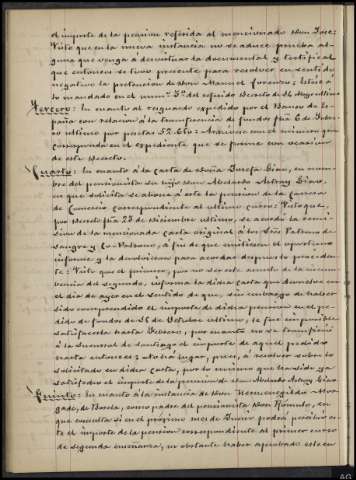 el importe de la pension referida al mencionado Don Jose:
Visto que en la nueva instancia no se aduce prueba al-
guna que venga á desvirtuar la documental y testifical
que entonces se tuvo presente para resolver en sentido
negativo la pretension de Don Manuel Lorenzo: Estése á
lo mandado en el num.º 3º del referido Decreto de 26
Tercero: En cuanto al resguardo expedido por el Banco de Es-
paña con relacion á la transferencia de fondos fha 6 de
último por pesetas 52.650: Archivese con el número que
corresponda en el expediente que se forme con ocasion
de este Decreto.
Cuarto: En cuanto á la carta de Doña Josefa Ciavo, en nom-
bre del pensionista su hijo Don Abelardo Astray Ciavo,
en que solicita se abone á este la pension de la carrera
de Comercio correspondiente al último curso: Visto que,
por Decreto fha 29 de Diciembre último, se acordó la remi-
sion de la mencionada carta original á los Sres Patronos de
Sangre y Co-Patronos, á fin de que emitiesen el oportuno
informe y la devolviesen para acordar despues lo proceden-
te: Visto que el primero, por no ser este asunto de la incum-
bencia del segundo, informa la dicha carta que devuelve con
el dia de ayer en el sentido de que, sin embargo de haber
sido comprendido el importe de dicha pension en el pe-
dido de fondos de 26 de Octubre último, le fue imposible
satisfacerla hasta Febrero, por cuanto no se transfirió
á la Sucursal de Santiago el importe de aquel pedido
hasta entonces: No há lugar, pues, á resolver sobre lo
solicitado en dicha carta, por lo mismo que ha sido ya
satisfecho el importe de la pension de Don Abelardo Astray Ciavo.
Quinto: En cuanto á la instancia de Don Hermenegildo
de Borela, como padre del pensionista Don Rómulo, en
que consulta si en el próximo mes de Junio podrá percibir es-
te el importe de la pension correspondiente al primer curso
de segunda enseñanza, no obstante haber aprobado este en